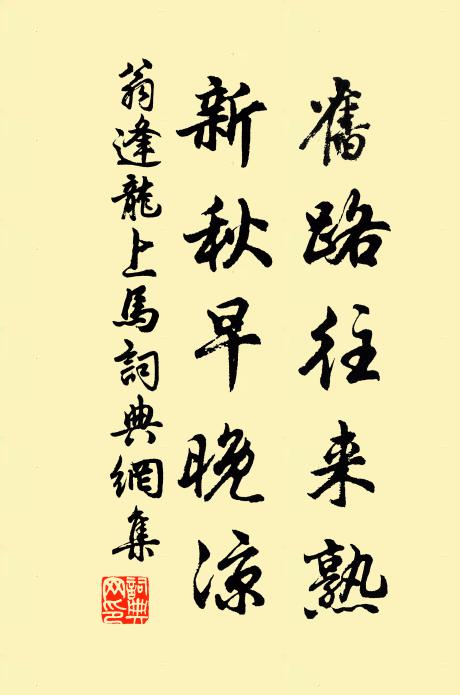 舊路往来熟
新秋早晚涼
翁逢龍上馬詞典網集
詞典网印